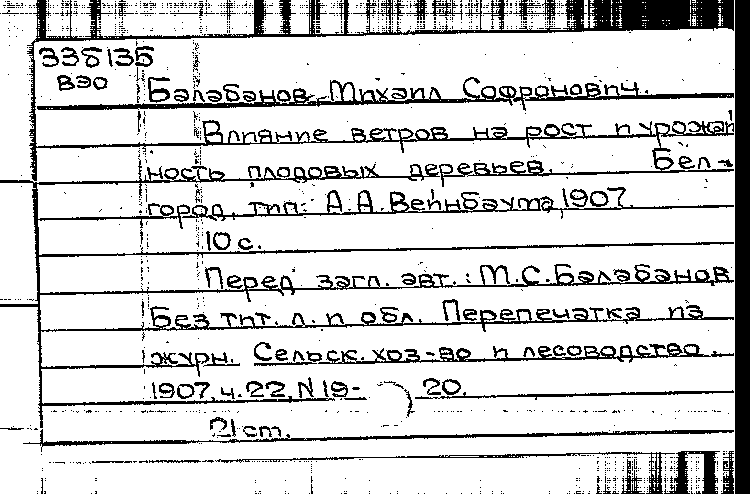 338135
ВЭО
Балабанов, Михаил Софронович.
Влияние ветров на рост и урожай
ность плодовых деревьев. Бел-
город, тип: А.А.Вейнбаума, 1907.
10 с.
Перед загл. авт.: М.С.Балабанов
Без тит. л. и обл. Перепечатка из
журн. Сельск. хоз-во и лесоводство.
1907, ч. 22, N 19- 20.
21 cm.